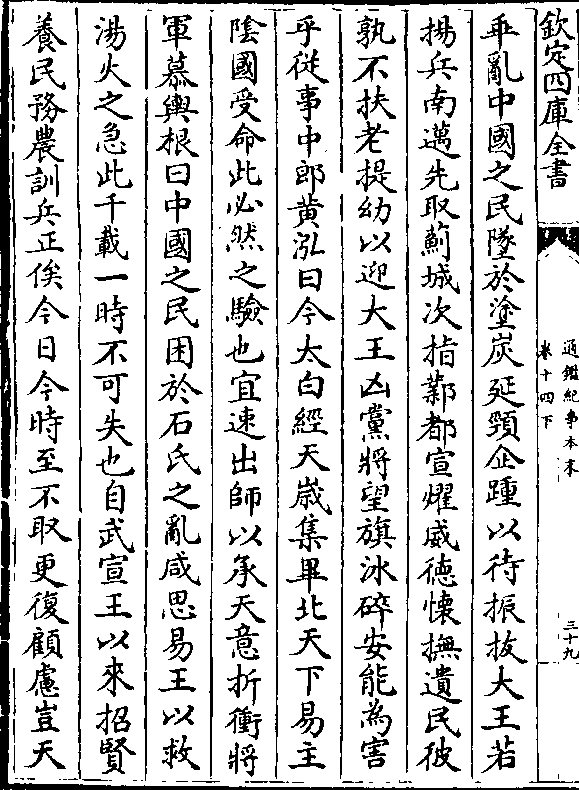 欽定四庫全書
通鑑紀事本末
卷十四下
三十九
乖亂中國之民墜於塗炭延頸企踵以待振拔大王若
揚兵南邁先取薊城次指鄴都宣耀威徳懐撫遺民彼
孰不扶老提幼以迎大王凶黨將望旗冰碎安能為害
乎從事中郎黄泓曰今太白經天嵗集畢北天下易主
陰國受命此必然之驗也宜速出師以承天意折衝將
軍慕輿根曰中國之民困於石氏之亂咸思易主以救
湯火之急此千載一時不可失也自武宣王以來招賢
養民務農訓兵正俟今日今時至不取更復顧慮豈天